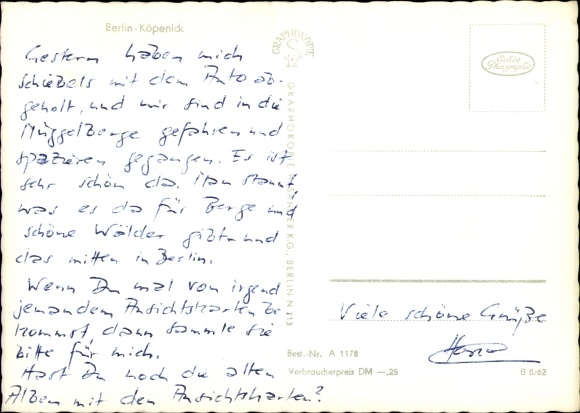 Berlin-Köpenick
Gestern haben mich
Schiebels mit dem Auto ab-
geholt, und wir sind in die
Müggelberge gefahren und
spazieren gegangen. Es ist
sehr schön da. Man staunt,
was es da für Berge und
schöne Wälder gibt und
das mitten in Berlin.
Wenn Du mal von irgend
jemandem Ansichtskarten be-
kommst, dann sammle sie
bitte für mich.
Hast Du noch die alten
Alben mit den Ansichtskarten?
GRAPHOKOPIE
GRAPHOKOPIE H. STURM KG., BERLIN N 113
Echte
Photographie
Viele schöne Grüße
Best.-Nr. A 1178
Verbraucherpreis DM —,25
B 8/62